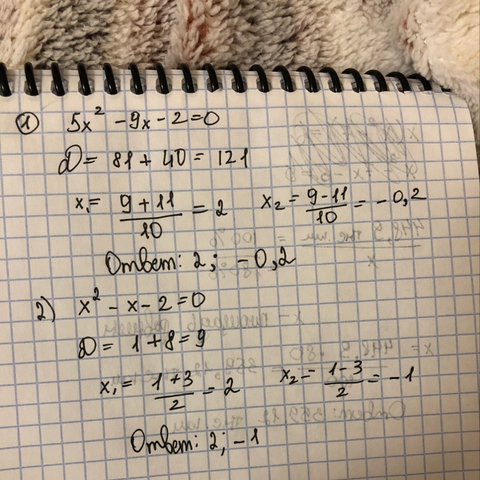 1) 5x² - 9x - 2 = 0
D = 81 + 40 = 121
x₁ = (9 + 11)/10 = 2 x₂ = (9 - 11)/10 = -0,2
Ответ: 2; -0,2
2) x² - x - 2 = 0
D = 1 + 8 = 9
x₁ = (1 + 3)/2 = 2 x₂ = (1 - 3)/2 = -1
Ответ: 2; -1